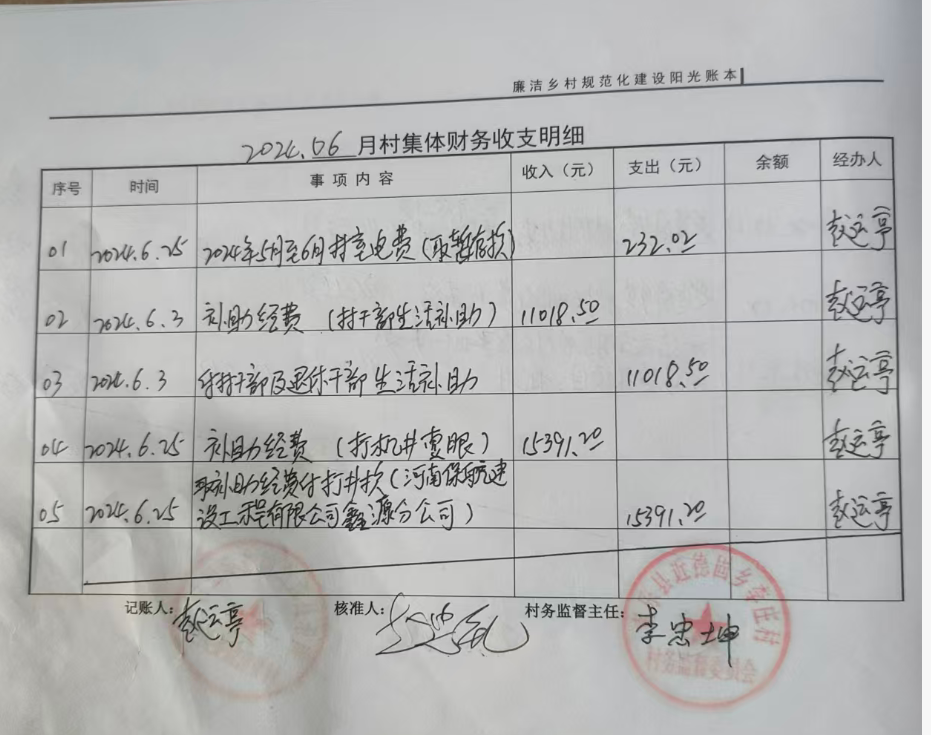 廉洁乡村规范化建设阳光账本
2024.06 月村集体财务收支明细
序号 时间 事项内容 收入（元） 支出（元） 余额 经办人
01 2024.6.25 2024年5月至6月村室电费 232.02 赵运亭
02 2024.6.3 补助经费（村干部生活补助） 11018.50 赵运亭
03 2024.6.3 付村干部及退休干部生活补助 11018.50 赵运亭
04 2024.6.25 补助经费（打机井壹眼） 15391.20 赵运亭
05 2024.6.25 补助经费付打井款（河南保航建
设工程有限公司鑫源分公司） 15391.20 赵运亭
记账人：赵运亭 核准人： 村务监督主任：李忠坤
县近德固乡李庄村
村务监督委员会